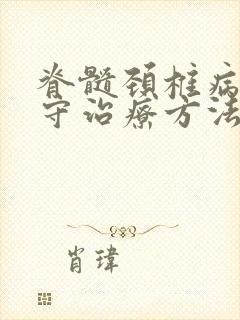 脊髓颈椎病
守治疗方法
肖瑋